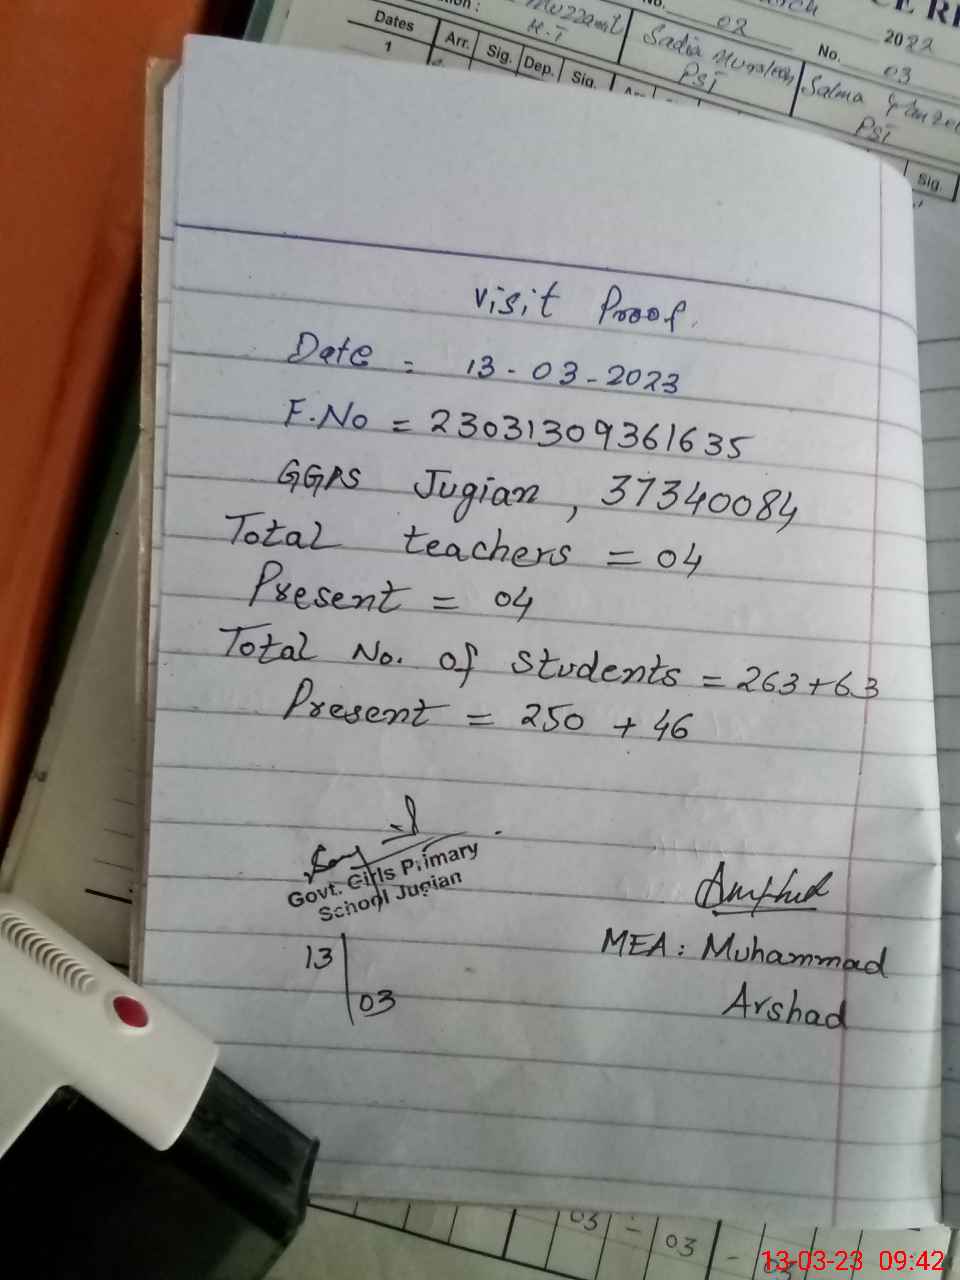 Dates
1
Arr. Sig. Dep. Sig.
No. 02
Sadia
PST
2022
No. 03
Salma
PST
Sig.
Visit Proof.
Date = 13-03-2023
F.No = 23031309361635
GGPS Jugian, 37340084
Total teachers = 04
Present = 04
Total No. of students = 263+63
Present = 250 + 46
Govt. Girls Primary
School Jugian
13
03
MEA: Muhammad
Arshad
03 - 03 - 03
13-03-23 09:42